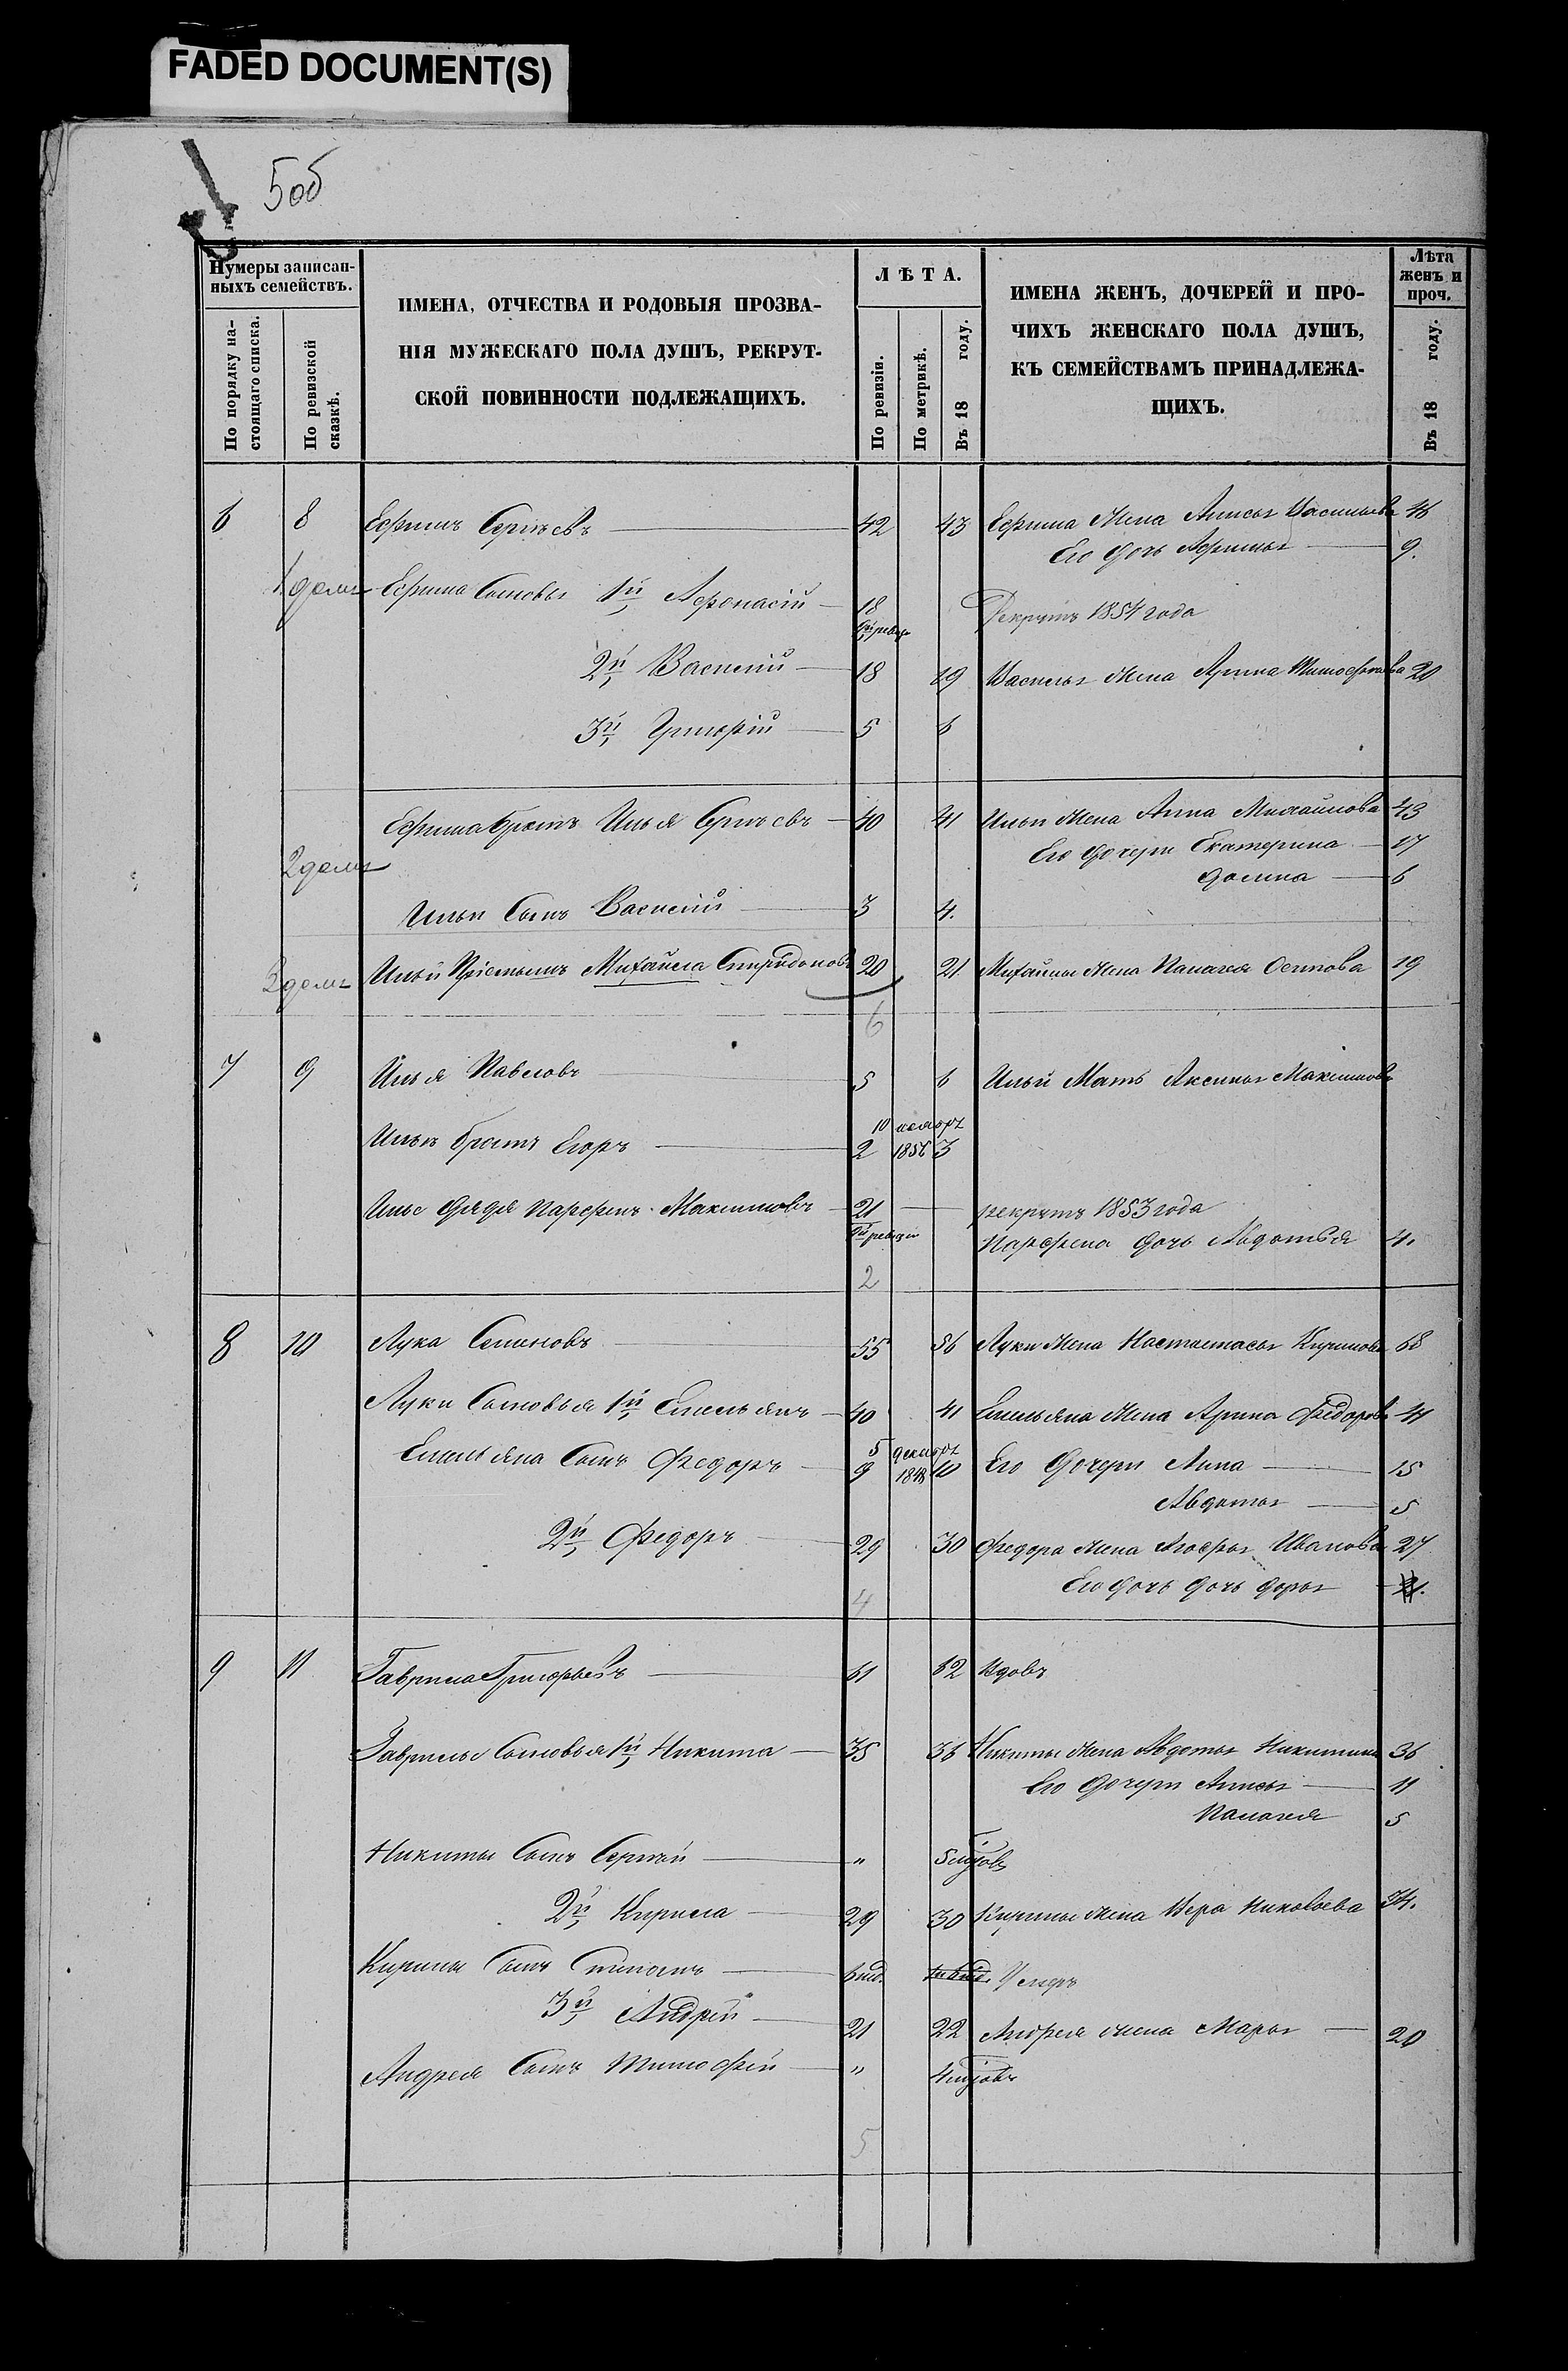 FADED DOCUMENT(S)
5об
Нумеры записан-
ныхъ семействъ.
По порядку на-
стоящаго списка.
По ревизской
сказкѣ.
ИМЕНА, ОТЧЕСТВА И РОДОВЫЯ ПРОЗВА-
НІЯ МУЖЕСКАГО ПОЛА ДУШЪ, РЕКРУТ-
СКОЙ ПОВИННОСТИ ПОДЛЕЖАЩИХЪ.
ЛѢТА.
По ревизіи.
По метрикѣ.
Въ 18 году.
ИМЕНА ЖЕНЪ, ДОЧЕРЕЙ И ПРО-
ЧИХЪ ЖЕНСКАГО ПОЛА ДУШЪ,
КЪ СЕМЕЙСТВАМЪ ПРИНАДЛЕЖА-
ЩИХЪ.
Лѣта
женъ и
проч.
Въ 18 году.
6 8 Ефимъ Сергѣевъ 42 43 Ефима Жена Анисья Васильева
Его дочь 9.
1 домъ Ефима Сыновья 1й Афонасій 18 Рекрутъ 1854 года
2й Василій 18 19 Василья Жена Арина Тимофеева 20
3й Григорій 5 6
Ефима братъ Илья Сергѣевъ 40 41 Ильи Жена Анна Михайлова 43
Его дочери Екатерина 17
2 домъ Домна 6
Ильи Сынъ Василій 3 4.
3 домъ Ильи Пріемышъ Михайла Спиридоновъ 20 21 Михайлы Жена Палагея Осипова 19
6
7 9 Илья Павловъ 5 6 Ильи Мать Аксинья Максимова
10 ноября
Ильи братъ Егоръ 2 1856 3
Ильи дядя Парфенъ Максимовъ 21 рекрутъ 1853 года
Парфена дочь Авдотья 4.
2
8 10 Лука Семеновъ 55 56 Луки Жена Настасья Кирилова 68
Луки Сыновья 1й Емельянъ 40 41 Емельяна Жена Арина Федорова 41
5 декабря
Емельяна Сынъ Федоръ 9 1848 10 Его дочери Анна 15
Авдотья 5
2й Федоръ 29 30 Федора Жена Иванова 27
Его дочь дочь Дарья
4
9 11 Гаврила Григорьевъ 61 62 Вдовъ
Гаврилы Сыновья 1й Никита 35 36 Никиты Жена Авдотья Никитина 36
Его дочери Анисья 11
Палагея 5
Никиты Сынъ Сергѣй " 5 мцовъ
2й Кирила 29 30 Кирилы Жена Вера Николаева 34.
Кирилы Сынъ Степанъ Умеръ
3й Андрей 21 22 Андрея жена Марья 20
Андрея Сынъ Тимофей " 4 мцовъ
5